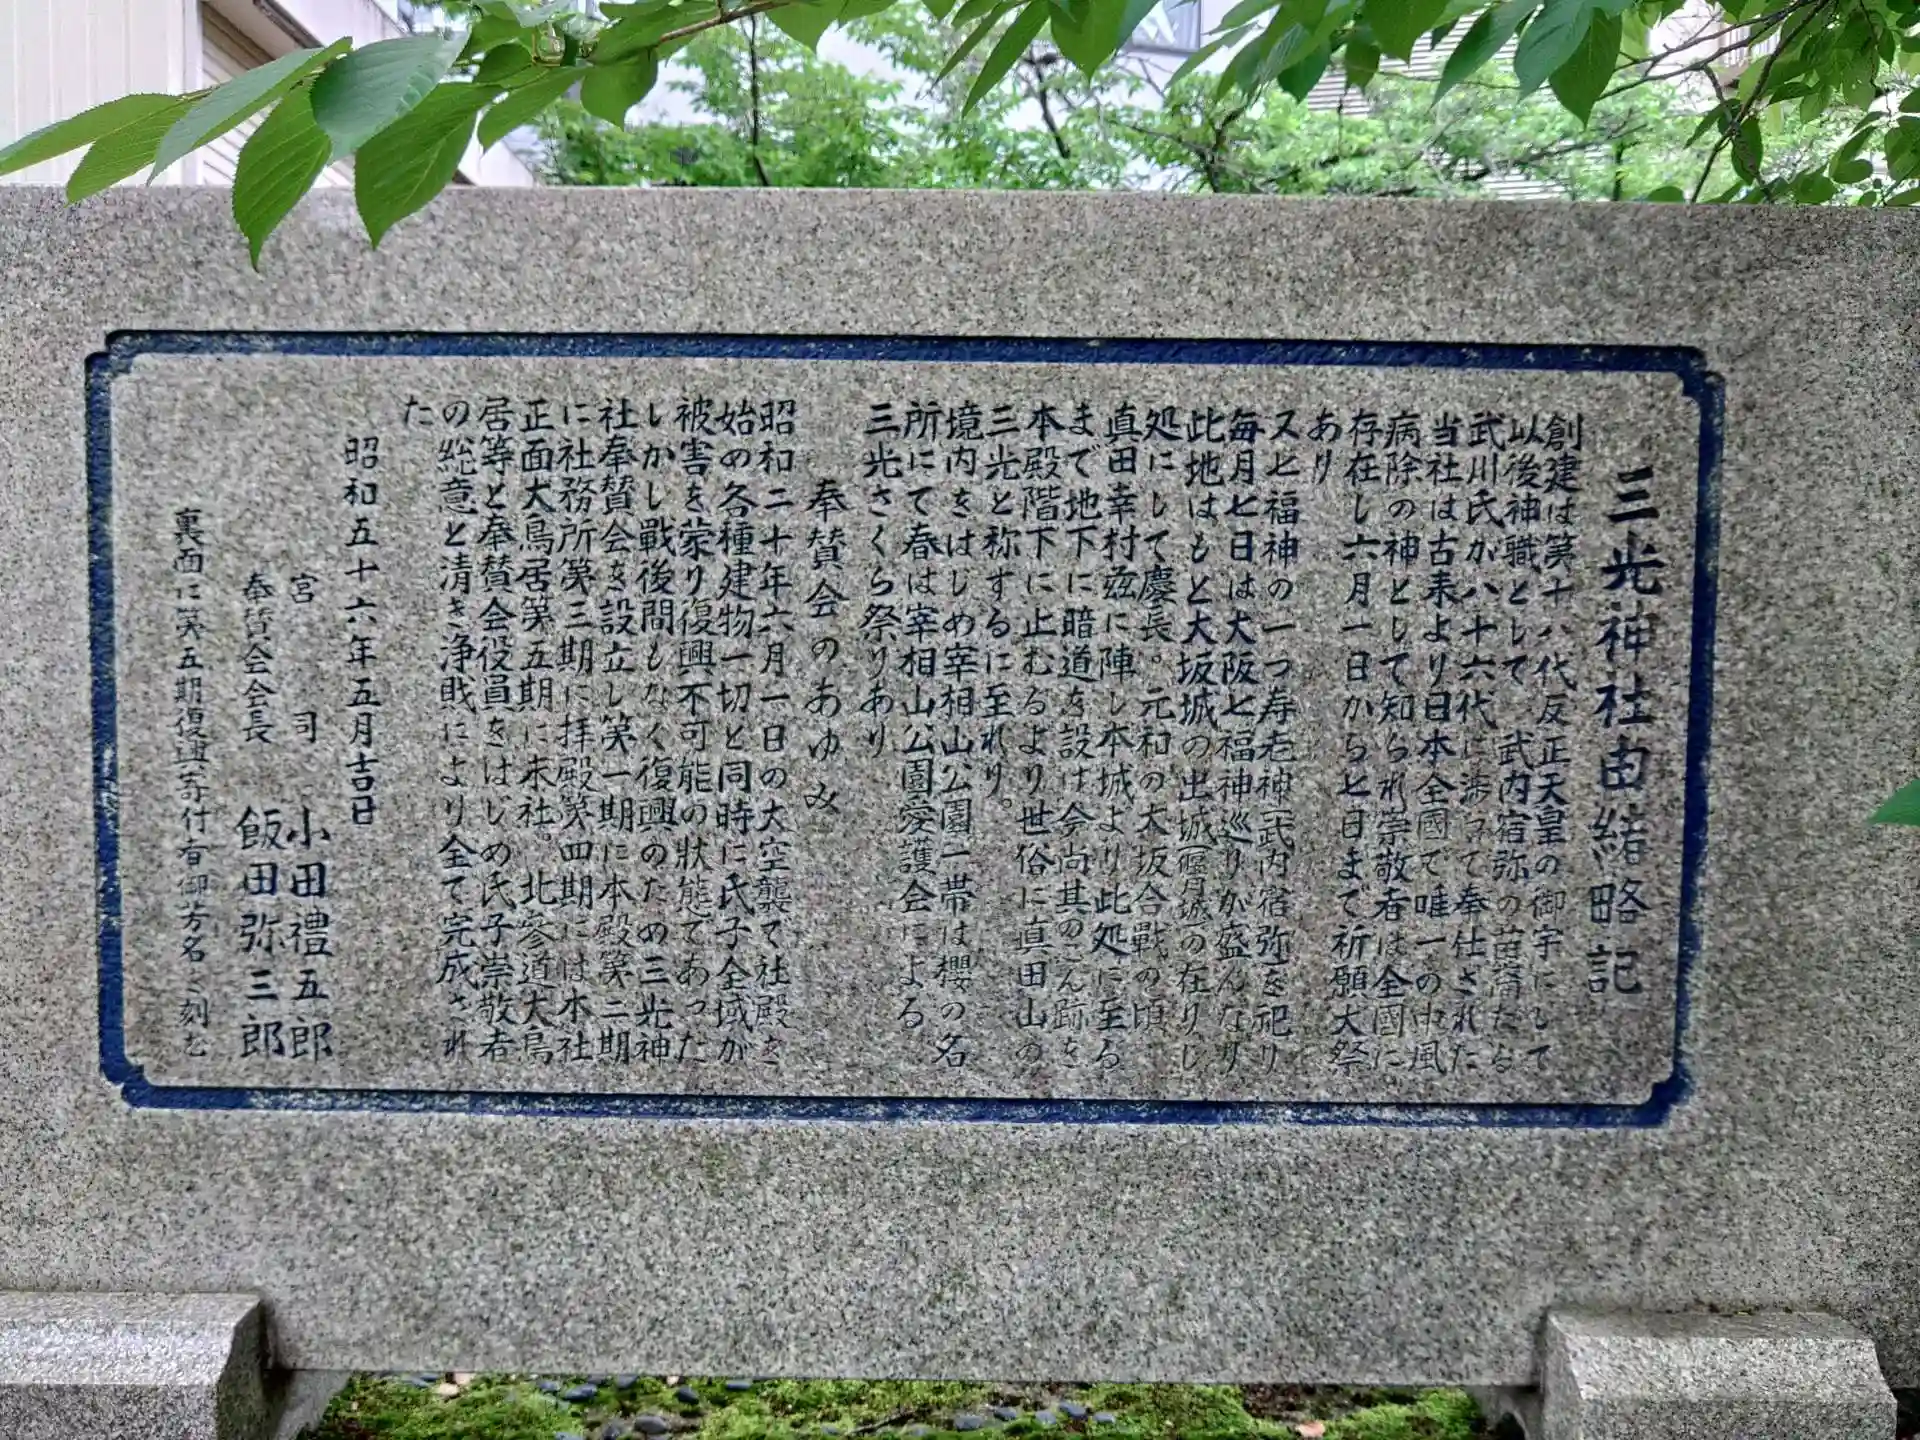 三光神社由緒略記
創建は第十八代反正天皇の御宇にして
以後神職として武内宿弥の苗裔たる
武川氏が八十六代に渉って奉仕された
当社は古来より日本全國で唯一の中風
病除の神として知られ崇敬者は全國に
存在し六月一日から七日まで祈願大祭
あり
又七福神の一つ寿老神(武内宿弥を祀り
毎月七日は大阪七福神巡りが盛んなり
此地はもと大坂城の出城(偃月城)の在りし
処にして慶長。元和の大坂合戰の頃
真田幸村玆に陣し本城より此処に至る
まで地下に暗道を設け今尚其のこん跡を
本殿階下に止むるより世俗に真田山の
三光と称するに至れり。
境内をはじめ宰相山公園一帯は櫻の名
所にて春は宰相山公園愛護会による
三光さくら祭りあり
奉賛会のあゆみ
昭和二十年六月一日の大空襲で社殿を
始め各種建物一切と同時に氏子全域が
被害を蒙り復興不可能の状態であった
しかし戰後間もなく復興のため三光神
社奉賛会を設立し第一期に本殿第二期
に社務所第三期に拝殿第四期には末社
正面大鳥居第五期に末社。北参道大鳥
居等と奉賛会役員をはじめ氏子崇敬者
の総意と清き浄財により全て完成され
た
昭和五十六年五月吉日
宮司 小田禮五郎
奉賛会会長 飯田弥三郎
裏面に第五期復興寄付者御芳名を刻む